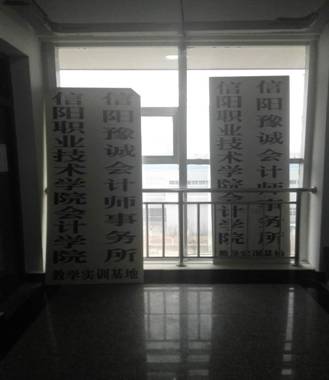 信阳豫诚会计师事务所
信阳职业技术学院会计学院
教学实训基地
信阳豫诚会计师事务所
信阳职业技术学院会计学院
教学实训基地